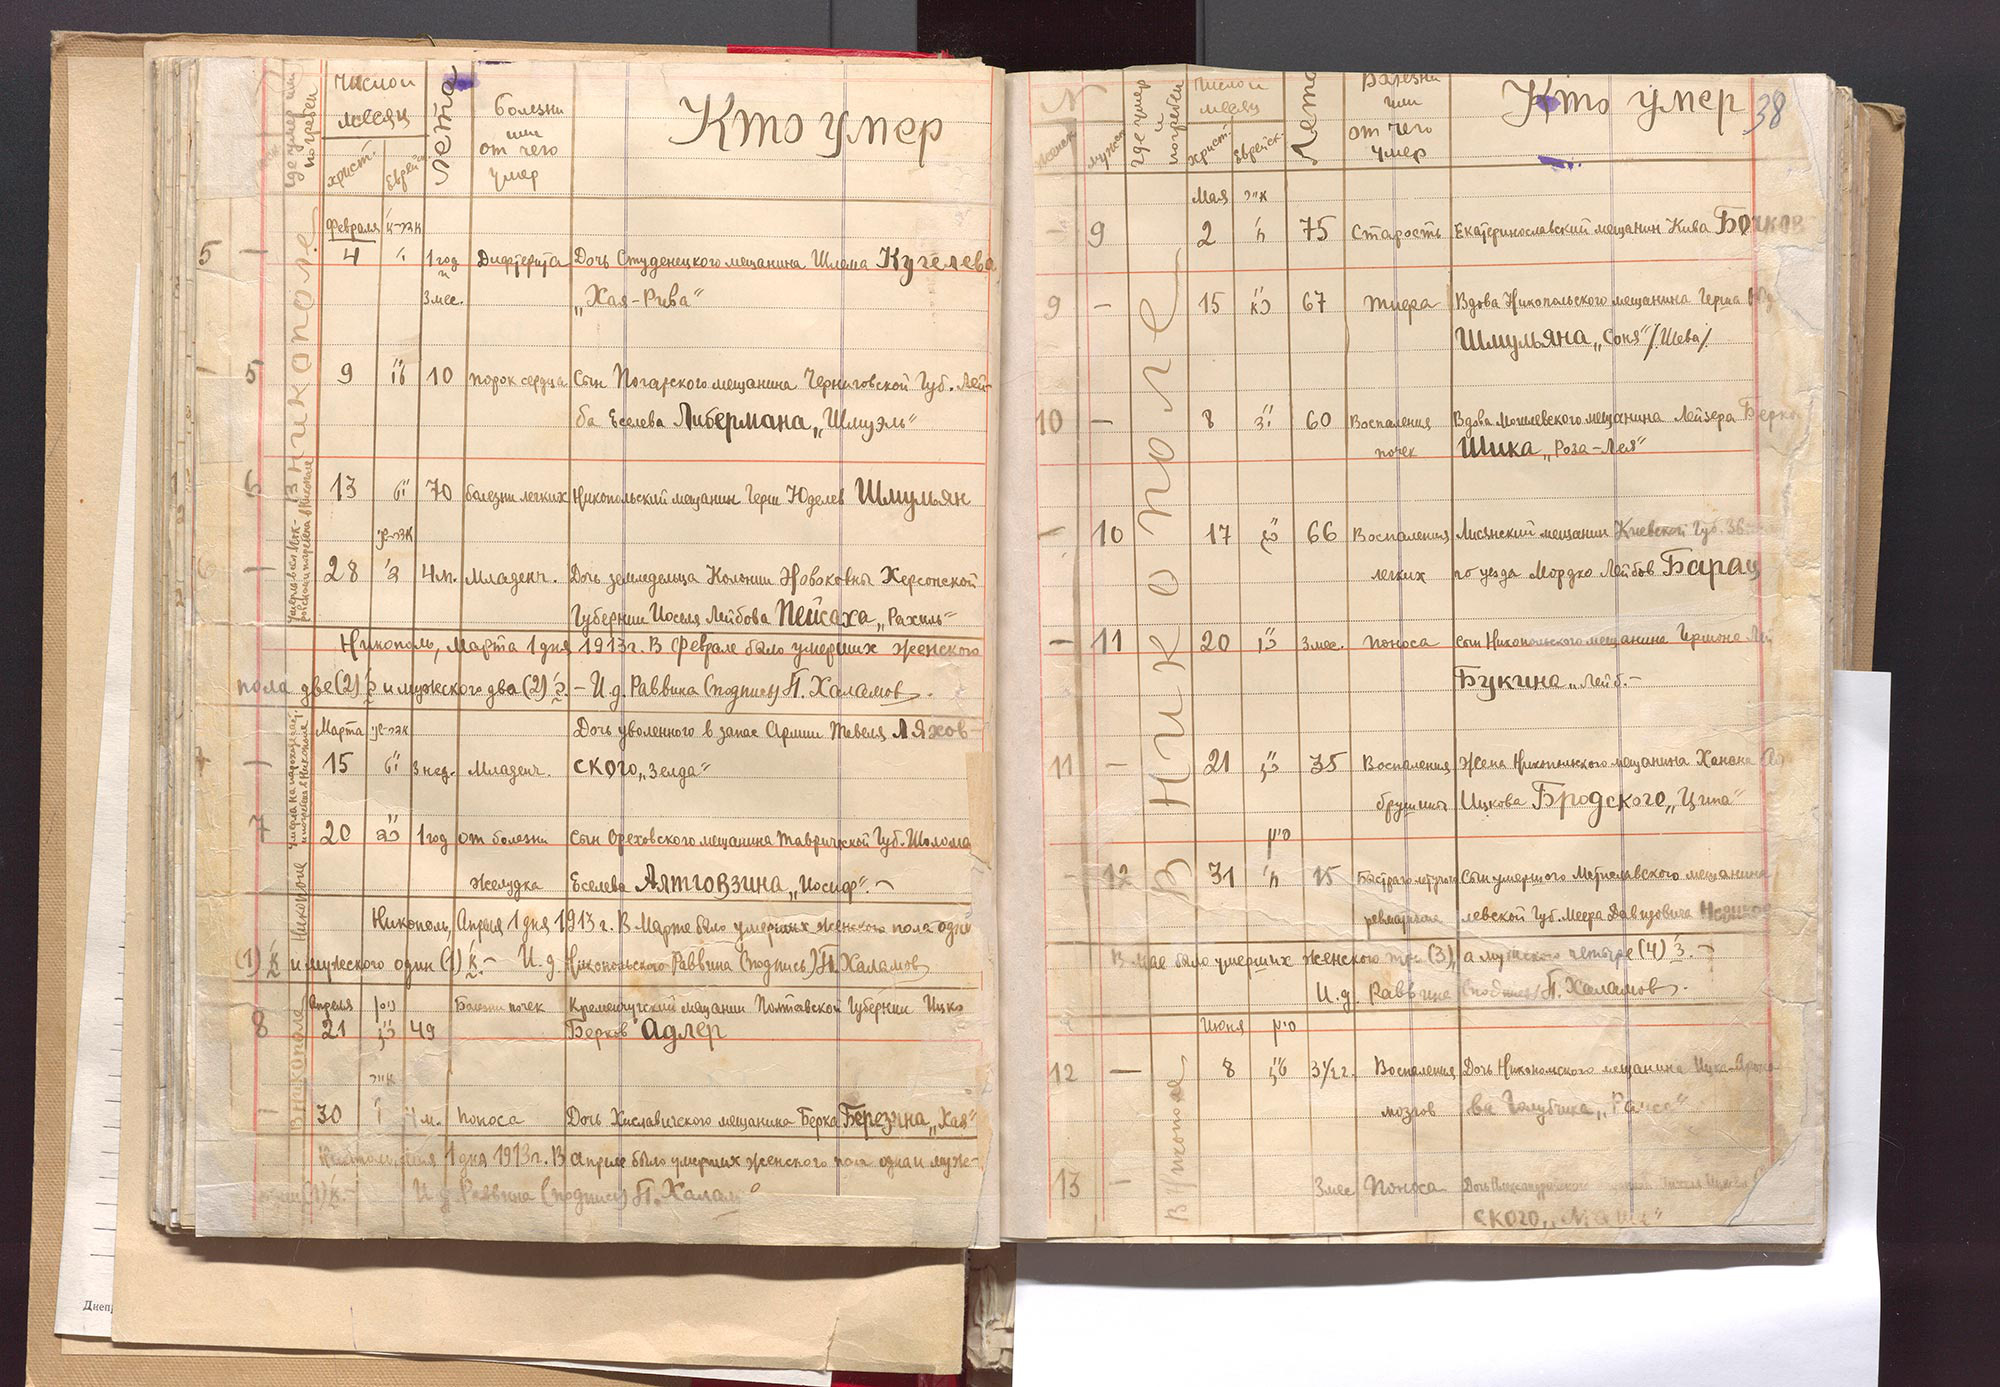 где умер или погребен
Число и месяц
христ.
Еврейск.
Лета
Болезни или от чего умер
Кто умер
В Никополе
Февраля אדר-א
5 — 4 1 год и 3 мес. Дифтерита Дочь Студенецкого мещанина Шлема Кугелева
„Хая-Рива“
5 9 10 порок сердца Сын Погарского мещанина Черниговской Губ. Лей-
ба Еселева Либермана „Шмуэль“
6 13 70 болезни легких Никопольский мещанин Герш Юделев Шмульян
28 4 м. Младенч. Дочь земледельца Колонии Новоковны Херсонской
Губернии Иоселя Лейбова Пейсаха „Рахиль“
Никополь, Марта 1 дня 1913 г. В Феврале было умерших женского
пола две (2) и мужского два (2) — И. д. Раввина (подпись) П. Халамов
Марта Дочь уволенного в запас Армии Тевеля Ляхов-
— 15 3 нед. Младенч. ского „Зелда“
7 20 1 год от болезни Сын Ореховского мещанина Таврической Губ. Шолома
желудка Еселева Алтговзина „Иосиф“. —
Никополь, Апреля 1 дня 1913 г. В Марте было умерших женского пола одна
(1) и мужского один (1) — И. д. Никопольского Раввина (подпись) П. Халамов
Апреля ניסן Болезни почек Кременчугский мещанин Полтавской Губернии Ицко
8 21 49 Берков Адлер
אייר
— 30 м. поноса Дочь Хиславичского мещанина Берка Березина „Хая“
1 дня 1913 г. В апреле было умерших женского пола одна и муже-
И. д. Раввина (подпись) П. Халам
38
N
женск.
мужск.
где умер и погребен
Число и месяц
христ.
Еврейск.
Лета
Болезни или от чего умер
Кто умер
В Никополе
Мая אייר
— 9 2 75 Старость Екатеринославский мещанин Кива Бочков
9 — 15 67 тифа Вдова Никопольского мещанина Герша
Шмульяна „Соня“ /Шева/
10 — 8 60 Воспаления Вдова Могилевского мещанина Лейзера Берко
почек Шика „Роза-Лея“
— 10 17 66 Воспаления Лисянский мещанин Киевской Губ.
легких го уезда Мордко Лейбов Барац
— 11 20 3 мес. поноса Сын Никопольского мещанина
Букина „Лейб. —
11 — 21 35 Воспаления Жена Никопольского мещанина Ханана
брушины Ицкова Бродского „Ципа“
סיון
— 12 31 15 Быстраго летучего Сын умершого Мстиславского мещанина
ревматизма левской Губ. Меера Давидовича
В Мае было умерших женского три (3), а мужского четыре (4) —
И. д. Раввина (подпись) П. Халамов.
Июня סיון
12 — 8 3½ г. Воспаления Дочь Никопольского мещанина
мозгов ва Голубчика „Раиса“
В Никополе
13 — 3 мес. Поноса Дочь
ского „Маня“
Днеп